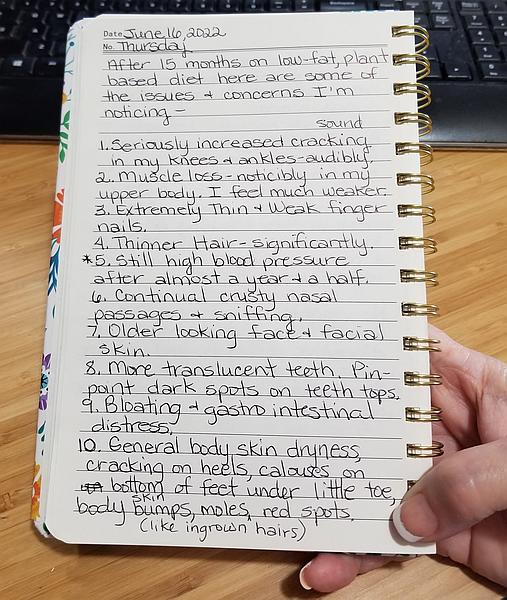 Date June 16, 2022
No. Thursday
After 15 months on low-fat, plant
based diet here are some of
the issues & concerns I'm
noticing -
sound
1. Seriously increased cracking
in my knees & ankles-audibly.
2. Muscle loss-noticibly in my
upper body. I feel much weaker.
3. Extremely Thin & Weak finger
nails.
4. Thinner Hair-significantly.
*5. Still high blood pressure
after almost a year & a half.
6. Continual crusty nasal
passages & sniffing.
7. Older looking face & facial
skin.
8. More translucent teeth. Pin-
point dark spots on teeth tops.
9. Bloating & gastro intestinal
distress.
10. General body skin dryness,
cracking on heels, calouses on
bottom of feet under little toe,
body skin bumps, moles, red spots.
(like ingrown hairs)